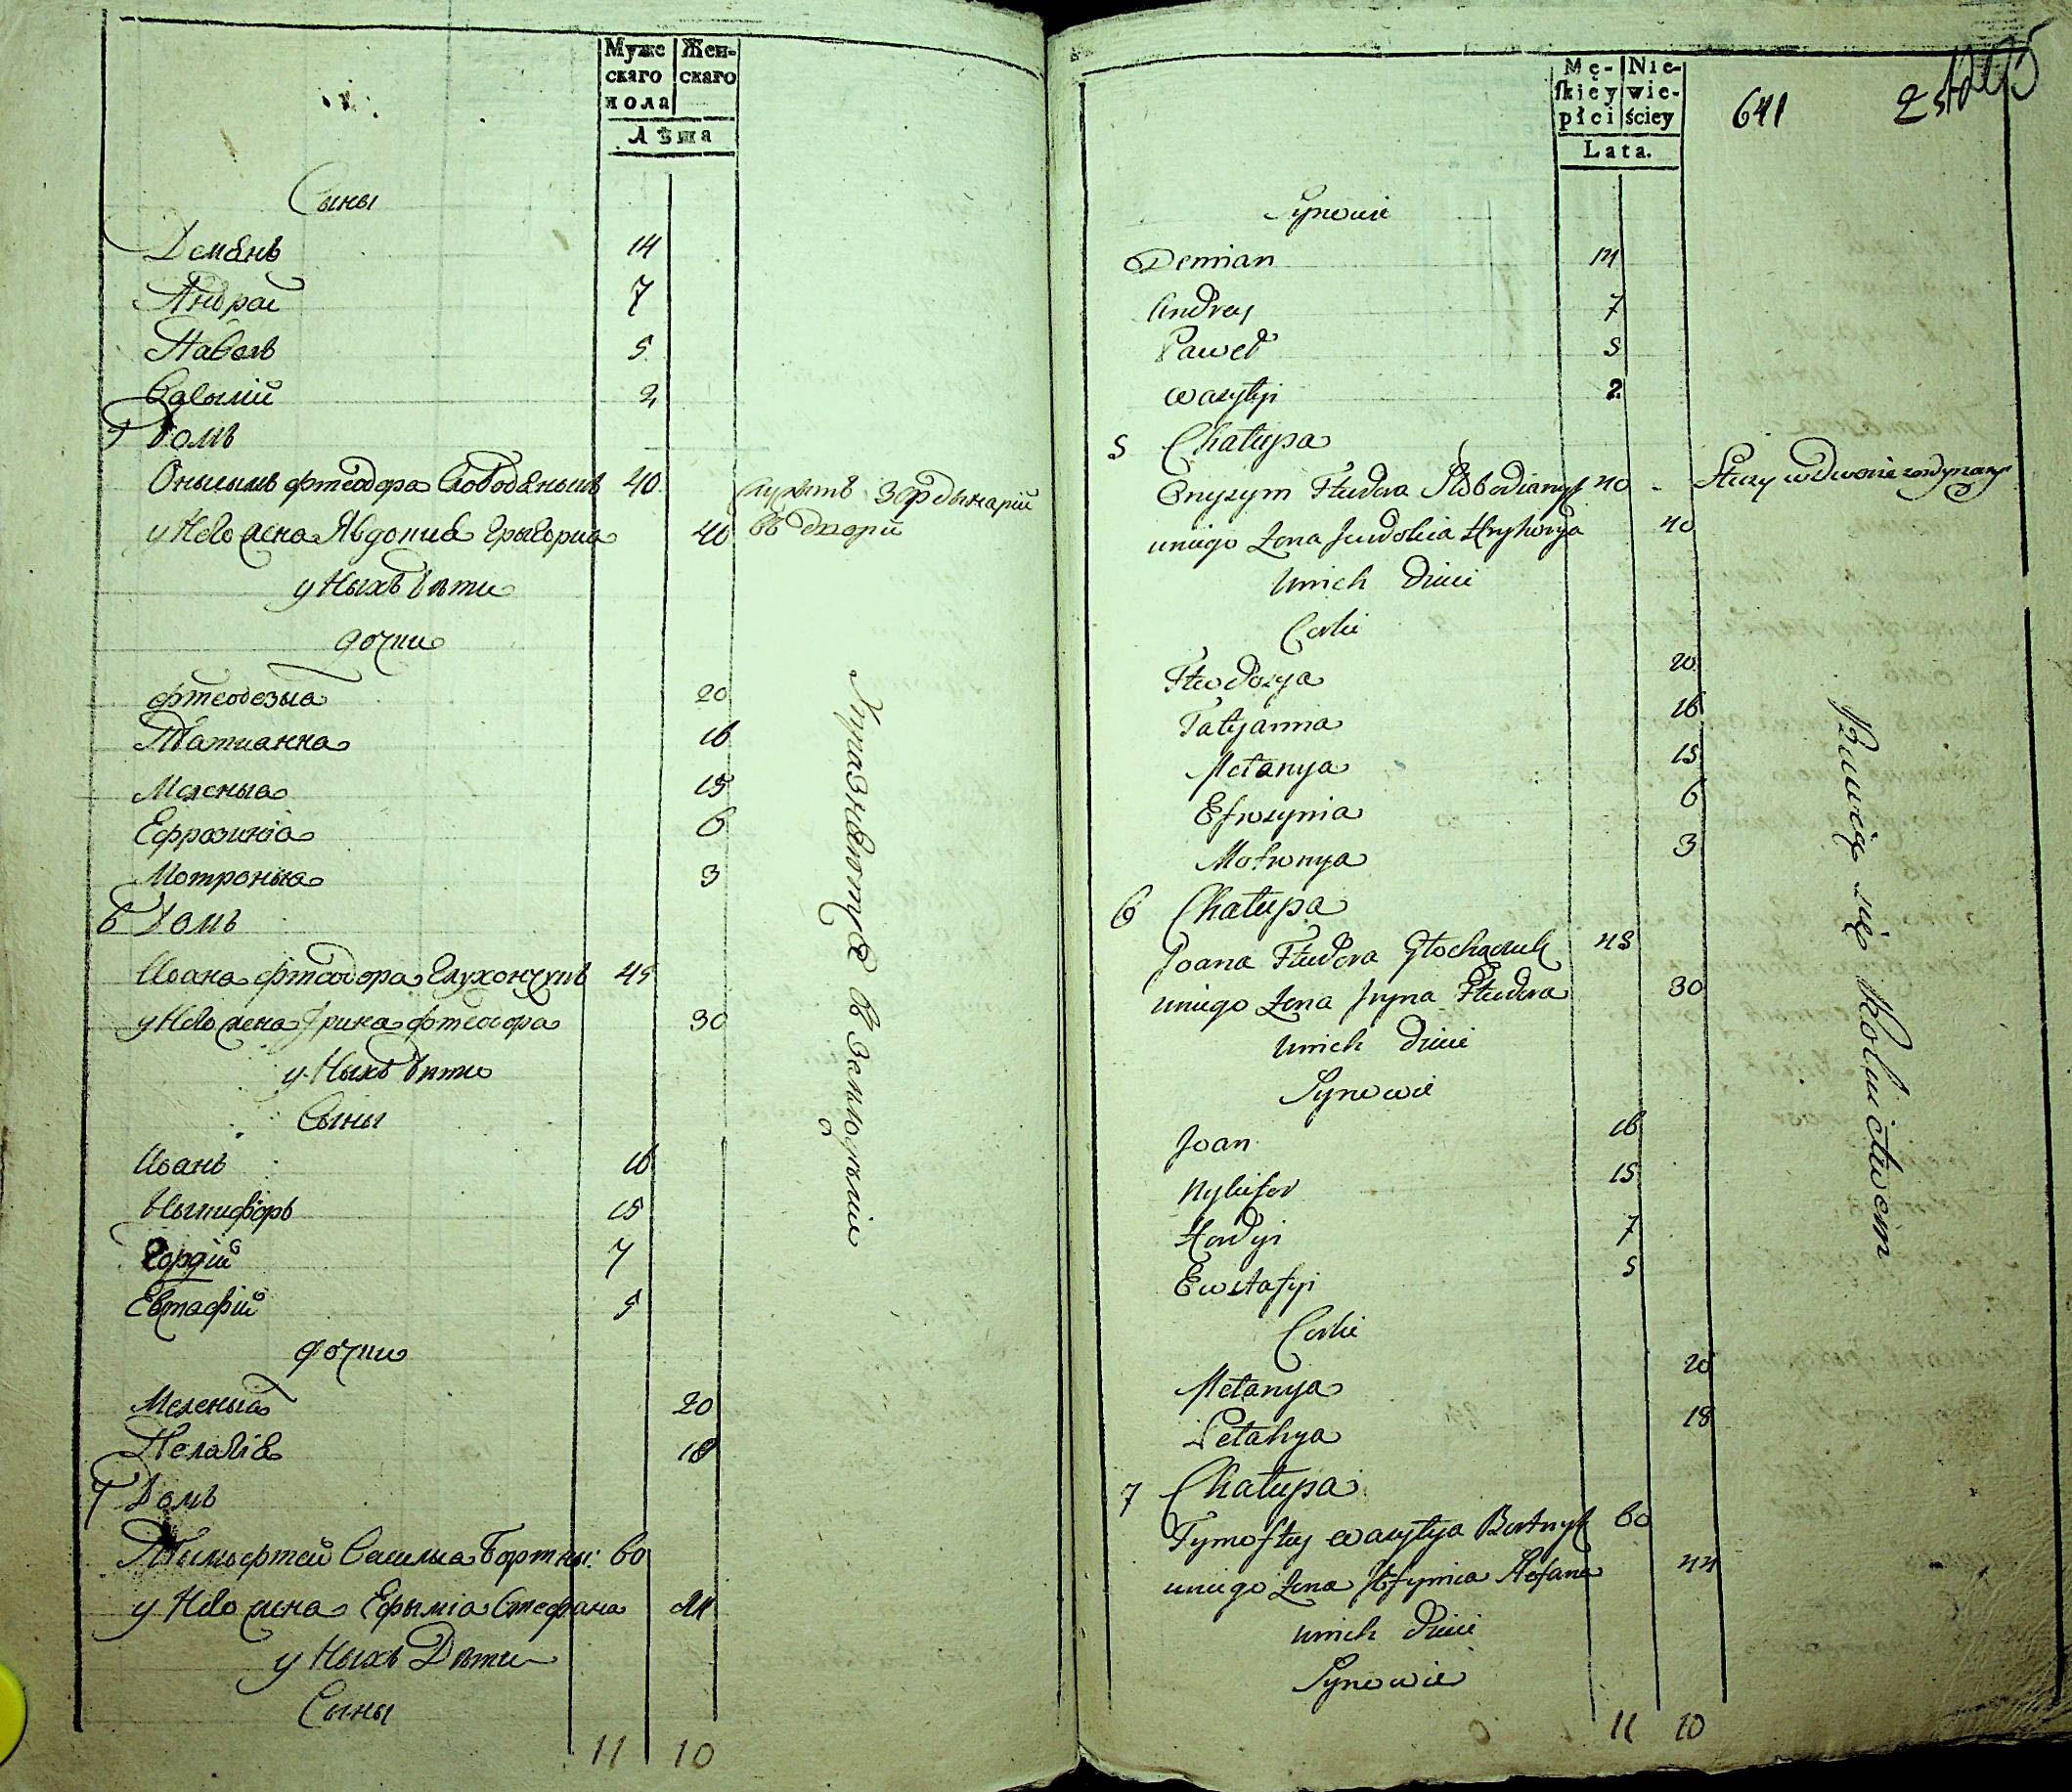 Муже
скаго
пола
Жен-
скаго
Лѣта
Сыны
Демянъ 14
Андрей 7
Павелъ 5
Василій 2
5 Домъ
Онысымъ Фтеодора Слободяныкъ 40 служитъ за ордынарій
у Него жена Явдокия Грыгорiа 40 въ дворѣ
у Ныхъ дѣти
дочки
Фтеодозыа 20
Татианна 16
Меланыа 15
Ефрозинiа 6
Мотроныа 3
6 Домъ
Иоана Фтеодора Глухончукъ 45
у Него жена Ірина Фтеодора 30
у Ныхъ дѣти
Сыны
Иоанъ 16
Ныкифоръ 15
Гордій 7
Евтафій 5
дочки
Меланыа 20
Пелагіа 18
7 Домъ
Тимофтей Василиа Бортны: 60
у Него жена Ефыміа Стефана 44
у Ныхъ Дѣти
Сыны
11 10
Упражняютця въ Земледѣліи
Mę-
skiey
płci
Nie-
wie-
ściey
Lata.
641
Synowie
Demian 14
Andrey 7
Paweł 5
Wasylyi 2
5 Chałupa
Onysym Fteodora Słobodianyk 40 Służy w dworze za ordynaryę
u niego Żona Jewdokia Hryhorya 40
u nich Dzieci
Corki
Fteodozya 20
Tatyanna 16
Mełanya 15
Efrozynia 6
Motronya 3
6 Chałupa
Joana Fteodora Głochączuk 45
u niego Żona Jryna Fteodora 30
u nich Dzieci
Synowie
Joan 16
Nykifor 15
Hordyi 7
Ewstafyi 5
Corki
Mełanya 20
Pełahya 18
7 Chałupa
Tymoftey Wasylya Bortnyk 60
u niego Żona Jefymia Stefana 44
u nich Dzieci
Synowie
11 10
Bawią się Rolnictwem